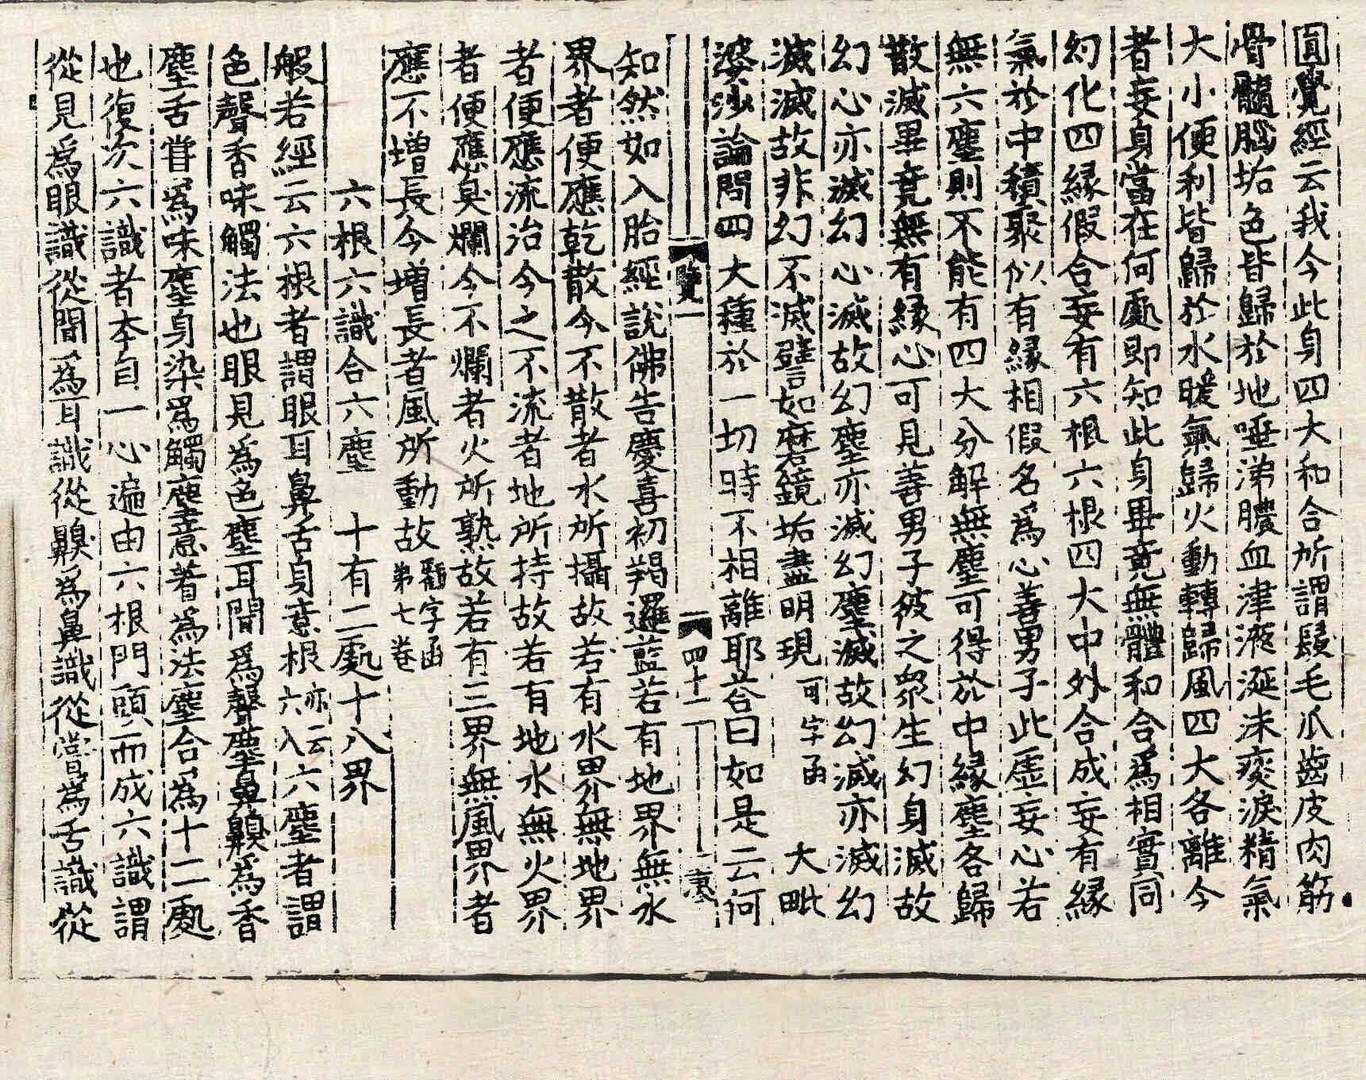 圓覺經云我今此身四大和合所謂髮毛爪齒皮肉筋
骨髓腦垢色皆歸於地唾涕膿血津液涎沫痰淚精氣
大小便利皆歸於水暖氣歸火動轉歸風四大各離今
者妄身當在何處即知此身畢竟無體和合爲相實同
幻化四緣假合妄有六根六根四大中外合成妄有緣
氣於中積聚似有緣相假名爲心善男子此虛妄心若
無六塵則不能有四大分解無塵可得於中緣塵各歸
散滅畢竟無有緣心可見善男子彼之衆生幻身滅故
幻心亦滅幻心滅故幻塵亦滅幻塵滅故幻滅亦滅幻
滅滅故非幻不滅譬如磨鏡垢盡明現可字函 大毗
婆沙論問四大種於一切時不相離耶荅曰如是云何
覽一 四十一 裏
知然如入胎經說佛告慶喜初羯邏藍若有地界無水
界者便應乾散今不散者水所攝故若有水界無地界
者便應流治今之不流者地所持故若有地水無火界
者便應臭爛今不爛者火所熟故若有三界無風界者
應不增長今增長者風所動故 字函第七卷
六根六識合六塵 十有二處十八界
般若經云六根者謂眼耳鼻舌身意根亦云六入六塵者謂
色聲香味觸法也眼見爲色塵耳聞爲聲塵鼻齅爲香
塵舌嘗爲味塵身染爲觸塵意着爲法塵合爲十二處
也復次六識者本自一心遍由六根門頭而成六識謂
從見爲眼識從聞爲耳識從齅爲鼻識從嘗爲舌識從